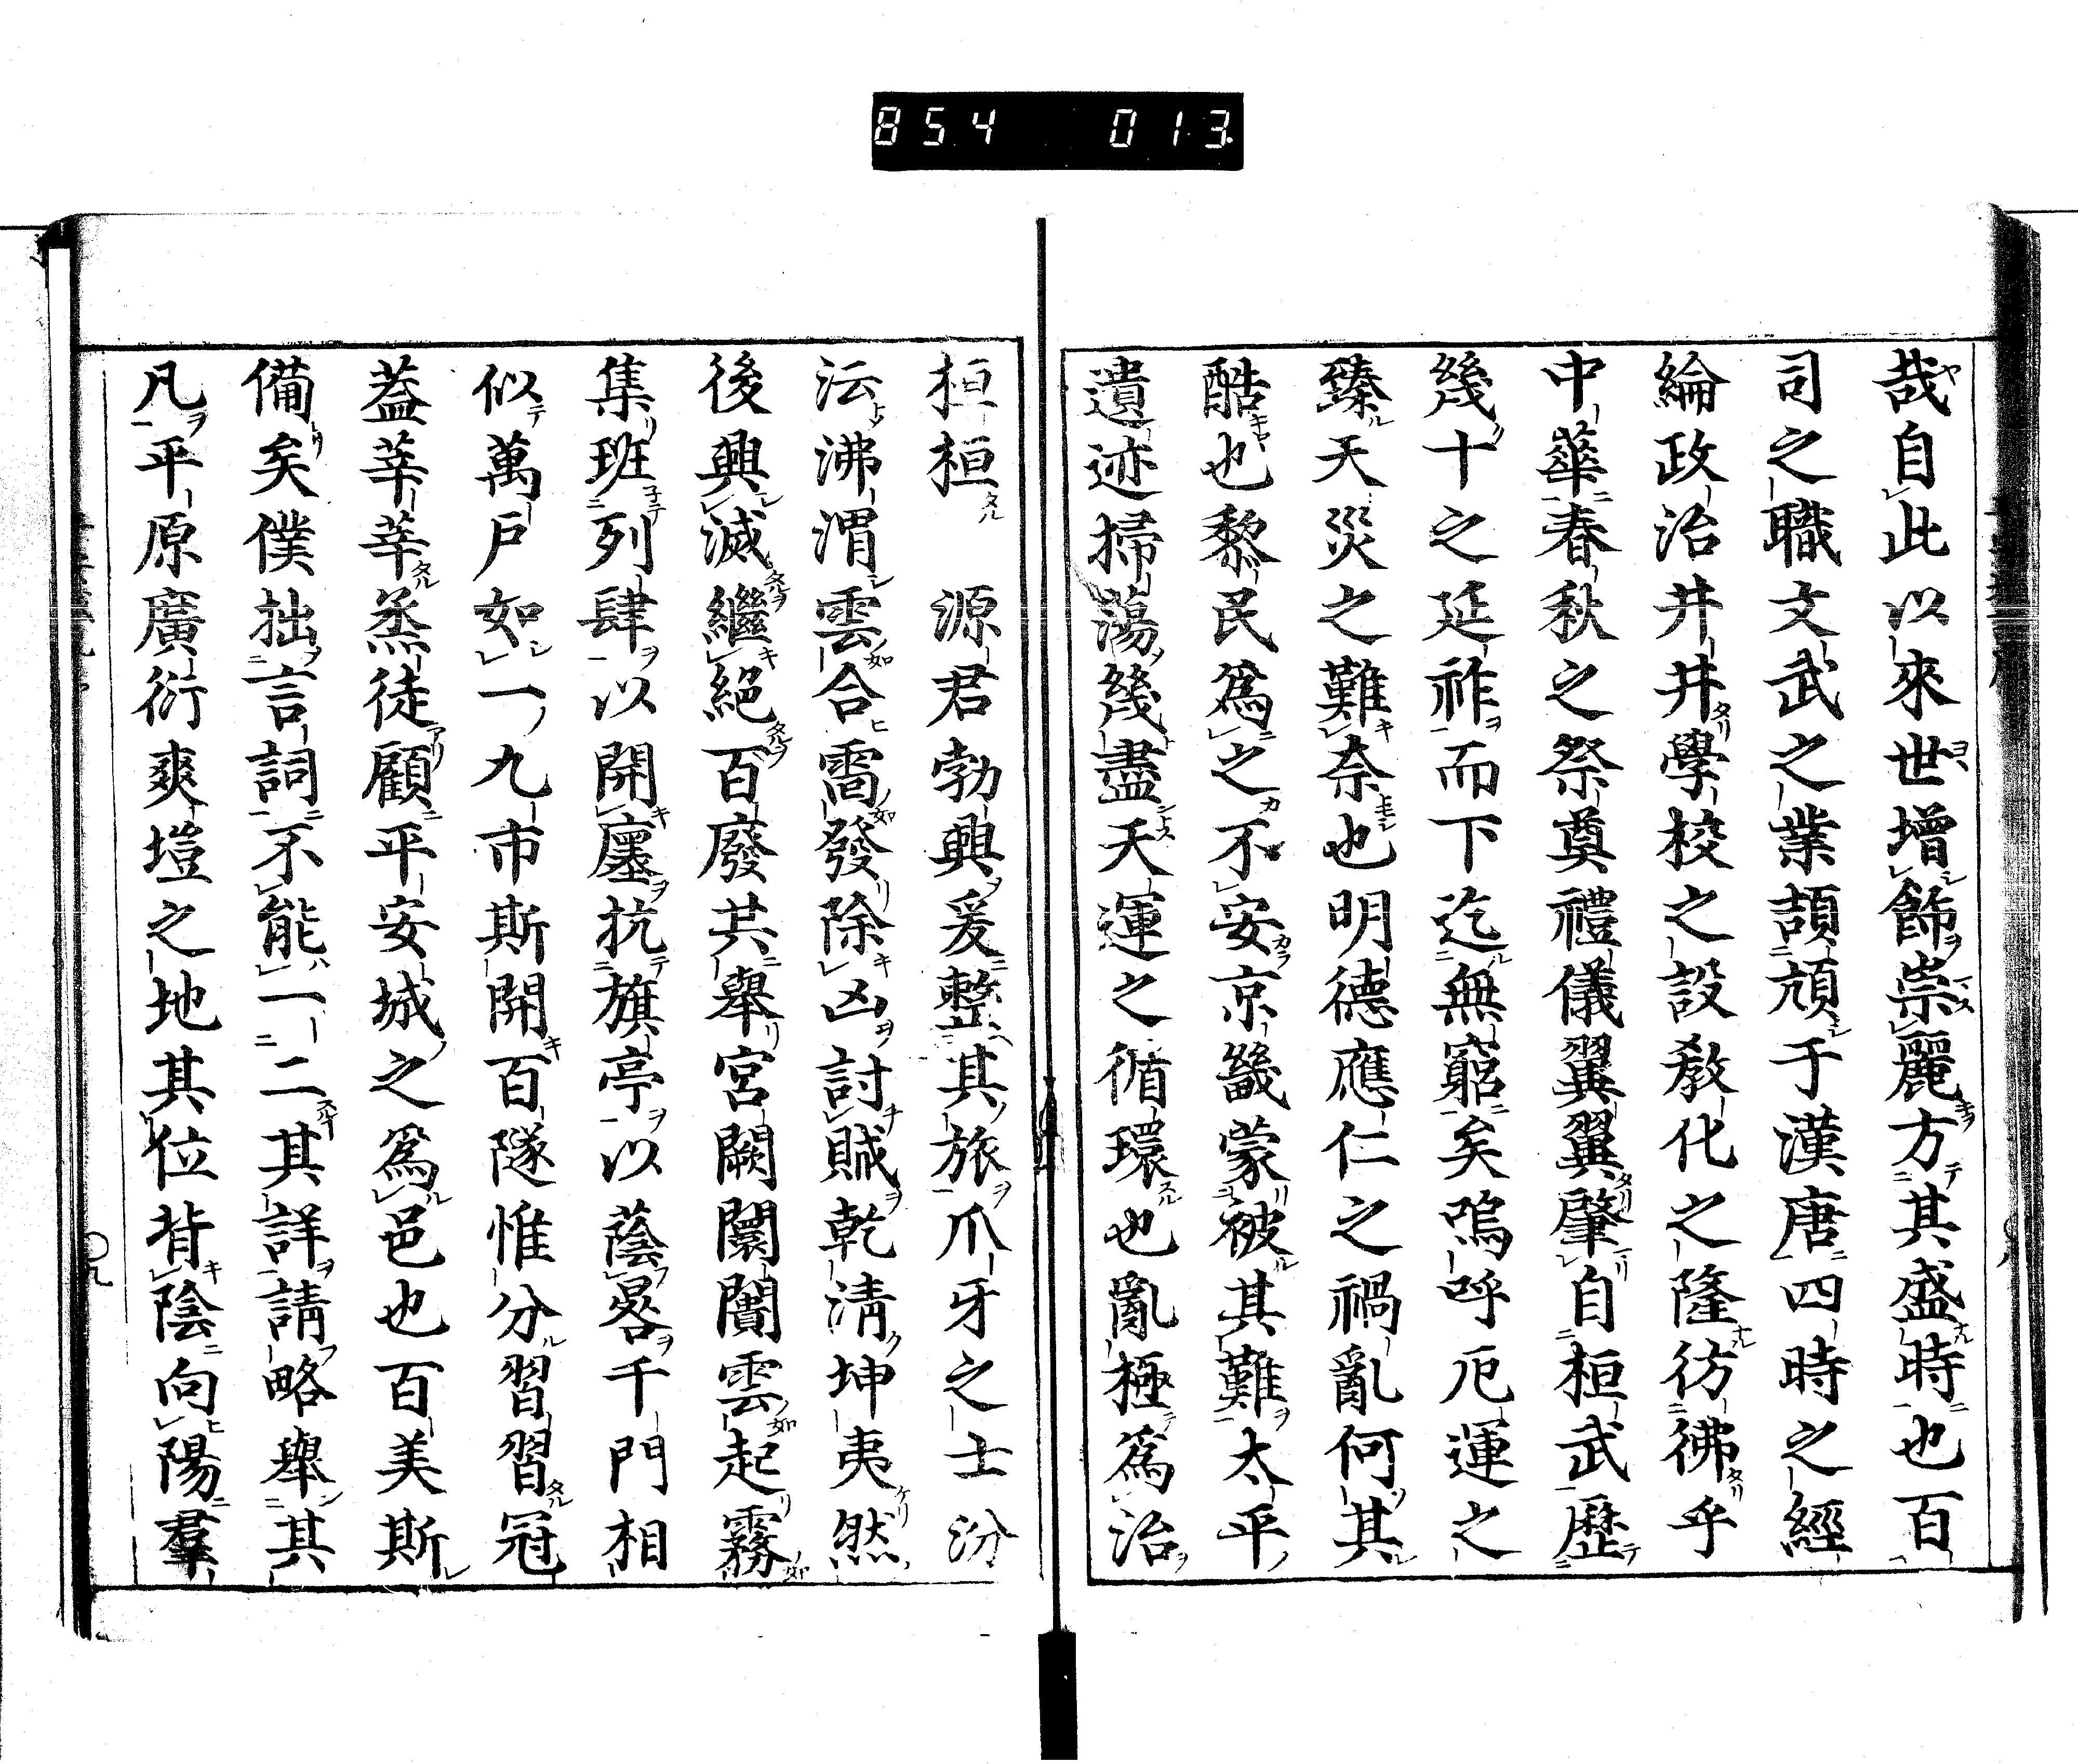 854 013
哉自此以來世增飾崇麗方其盛時也百
司之職文武之業頡頏于漢唐四時之經
綸政治井井學校之設教化之隆彷彿乎
中華春秋之祭奠禮儀翼翼肇自桓武歷
幾十之延祚而下迄無窮矣嗚呼厄運之
臻天災之難奈也明德應仁之禍亂何其
酷也黎民為之不安京畿蒙被其難太平
遺迹掃蕩幾盡天運之循環也亂極為治
桓桓　源君勃興爰整其旅爪牙之士汾
沄沸渭雲合霤發除凶討賊乾清坤夷然
後興滅繼絕百廢共舉宮闕闤闠雲起霧
集班列肆以開廛抗旗亭以蔭晷千門相
似萬戶如一九市斯開百隧惟分習習冠
蓋莘莘烝徒顧平安城之為邑也百美斯
備矣僕拙言詞不能一二其詳請略舉其
凡平原廣衍爽塏之地其位背陰向陽羣